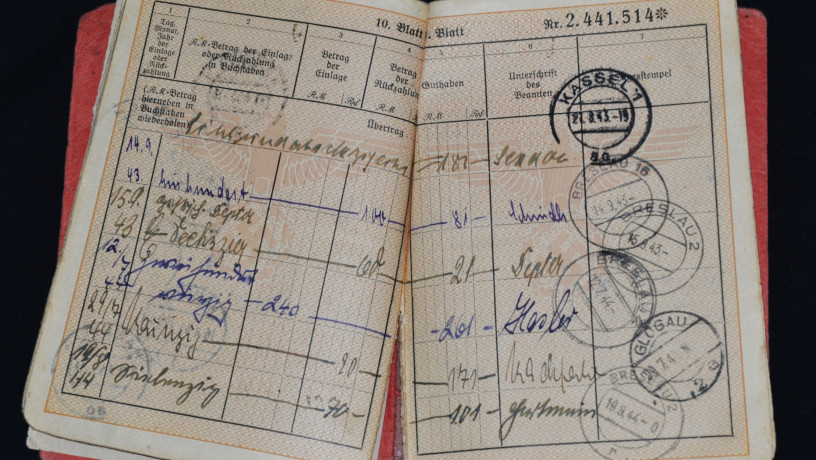 10. Blatt
. Blatt
Nr. 2.441.514*
1
2
3
4
5
6
7
Tag, Monat, Jahr der Einlage oder Rückzahlung
R.M.-Betrag der Einlage oder Rückzahlung in Buchstaben
Betrag der Einlage
R.M. Rpf
Betrag der Rückzahlung
R.M.
Guthaben
R.M. Rpf
Unterschrift des Beamten
stempel
(R.M.-Betrag hierneben in Buchstaben wiederholen)
Übertrag
181
KASSEL 1
21.8.43.-18
14.9.
43.
Einhundert
100
81
BRESLAU 16
14.9.43-
15.9.
43
Sechzig
60
21
BRESLAU 2
15.9.43-
12/7
44
Zweihundert
vierzig
240
261
BRESLAU
29/7
44
Neunzig
90
171
GLOGAU
19/8
44
Siebenzig
70
101
Hartmann
BRESLAU 2
19.8.44-0